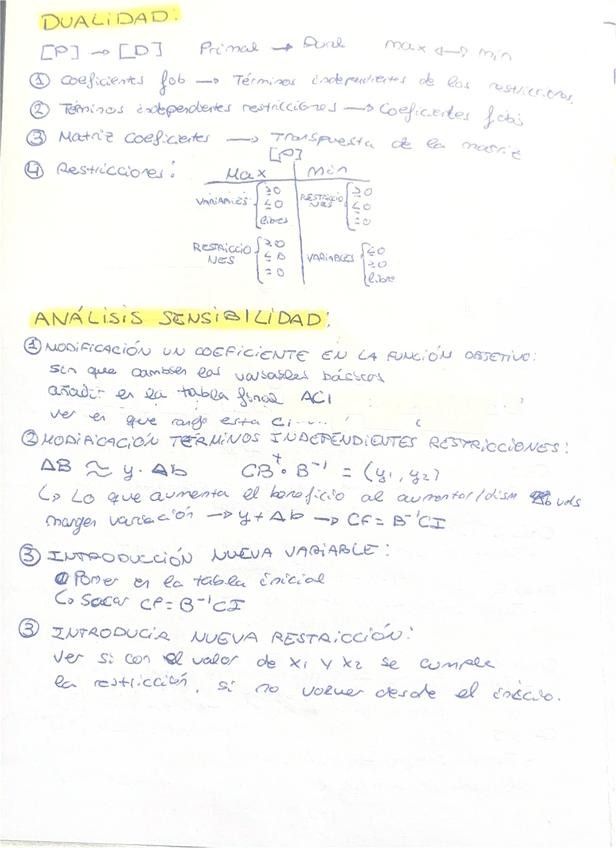 DUALIDAD:
[P] → [D] Primal → Dual max ↔ min
① Coeficientes fob → Términos independientes de las restricciones,
② Términos independentes restricciones → Coeficientes fobj
③ Matriz Coeficientes → Transpuesta de la matriz
[P]
④ Restricciones: Max | Min
VARIABLES { ≥0 | RESTRICCIO NES { ≥0
≤0 | ≤0
libres | =0
RESTRICCIO NES { ≥0 | VARIABLES { ≤0
≤0 | ≥0
=0 | libre
ANÁLISIS SENSIBILIDAD:
① MODIFICACIÓN UN COEFICIENTE EN LA FUNCIÓN OBJETIVO:
Sin que cambien las variables básicas
añadir en la tabla final ΔC1
ver en que rango esta Ci.....
② MODIFICACIÓN TÉRMINOS INDEPENDIENTES RESTRICCIONES:
ΔB ≈ y · Δb CB^t · B⁻¹ = (y1, y2)
↳ Lo que aumenta el beneficio al aumentar/dism Δb uds
margen variación → y + Δb → CF = B⁻¹CI
③ INTRODUCCIÓN NUEVA VARIABLE:
Poner en la tabla inicial
↳ Sacar CF = B⁻¹CI
③ INTRODUCIR NUEVA RESTRICCIÓN:
Ver si con el valor de x1 y x2 se cumple
la restricción, si no volver desde el inicio.